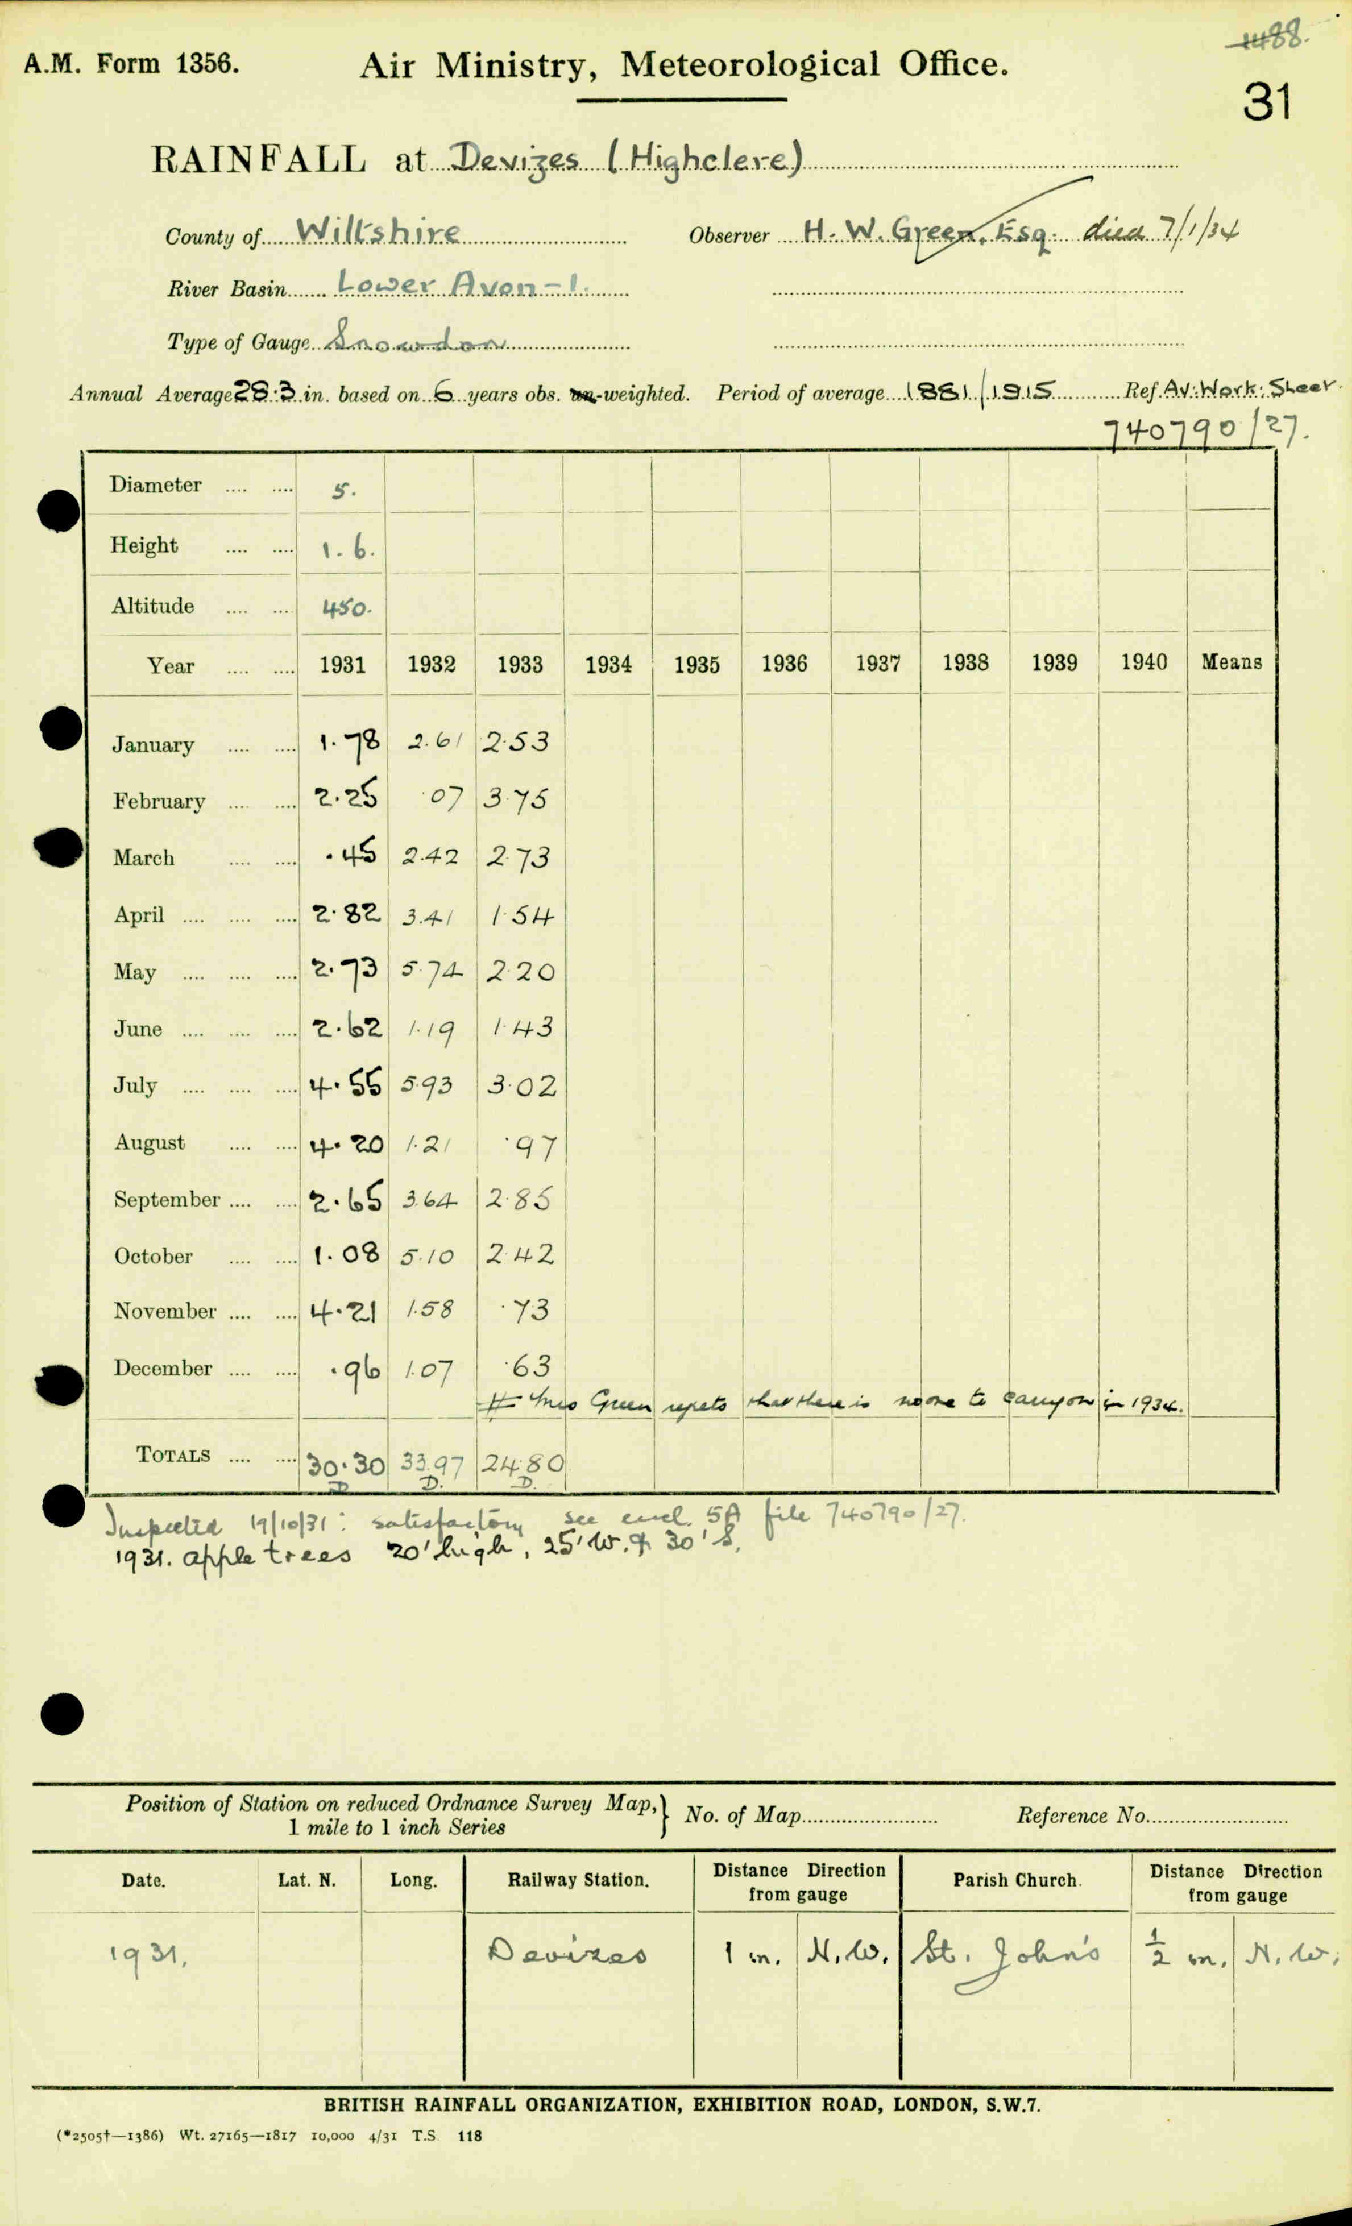 1488.
A.M. Form 1356.
Air Ministry, Meteorological Office.
31
RAINFALL at Devizes (Highclere)
County of Wiltshire Observer H. W. Green, Esq. died 7/1/34
River Basin Lower Avon-1.
Type of Gauge Snowdon
Annual Average 28.3 in. based on 6 years obs. un-weighted. Period of average 1881/1915 Ref. Av: Work: Sheet
740790/27.
Diameter .... .... 5.
Height .... .... 1.6.
Altitude .... .... 450.
Year .... .... 1931 1932 1933 1934 1935 1936 1937 1938 1939 1940 Means
January .... .... 1.78 2.61 2.53
February .... .... 2.25 .07 3.75
March .... .... .45 2.42 2.73
April .... .... .... 2.82 3.41 1.54
May .... .... .... 2.73 5.74 2.20
June .... .... .... 2.62 1.19 1.43
July .... .... .... 4.55 5.93 3.02
August .... .... 4.20 1.21 .97
September .... .... 2.65 3.64 2.85
October .... .... 1.08 5.10 2.42
November .... .... 4.21 1.58 .73
December .... .... .96 1.07 .63
# Mrs Green regrets that there is no one to carry on in 1934.
TOTALS .... .... 30.30 33.97 24.80
D D. D.
Inspected 19/10/31: satisfactory see encl. 5A file 740790/27.
1931. apple trees 20' high, 25' W. & 30' S.
Position of Station on reduced Ordnance Survey Map,} No. of Map Reference No.
1 mile to 1 inch Series
Date. Lat. N. Long. Railway Station. Distance Direction from gauge Parish Church. Distance Direction from gauge
1931. Devizes 1 m. N.W. St. John's ½ m. N.W.
BRITISH RAINFALL ORGANIZATION, EXHIBITION ROAD, LONDON, S.W.7.
(*2505†—1386) Wt. 27165—1817 10,000 4/31 T.S. 118